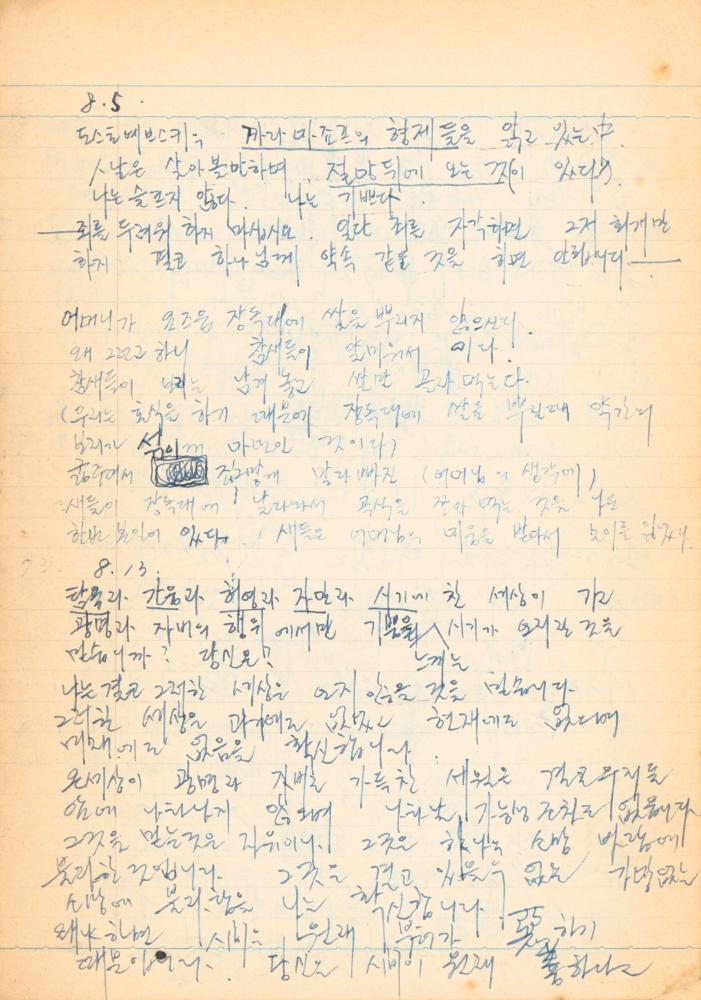 8.5.
도스토예브스키의 까라마죠프의 형제들을 읽고 있는 中.
人生은 살아볼만하며 절망뒤에 오는 것이 있다
나는 슬프지 않다. 나는 기쁘다.
—죄를 두려워 하지 마십시요. 일단 죄를 자각하면 그저 회개만
하지 결코 하나님께 약속 같은 것을 하면 안됩니다.—
어머니가 요즈음 장독대에 쌀을 뿌리지 않으신다.
왜 그런고 하니 참새들이 얄미워서 이다.
참새들이 보리는 남겨 놓고 쌀만 골라 먹는다.
(우리는 혼식을 하기 때문에 장독대에 쌀을 뿌릴때 약간의
보리가 섞이게 마련인 것이다)
굶주려서 말라빠진 (어머님의 생각에)
새들이 장독대에 날라와서 곡식을 먹는 것을 나도
한번 본일이 있다. 새들은 어머님의 미움을 받아서 모이를 잃었다.
8.13.
탐욕과 간음과 허영과 자만과 시기에 찬 세상이 가고
광명과 자비의 행위에서만 기쁨을 느끼는 시기가 오리란 것을
믿습니까? 당신은?
나는 결코 그러한 세상은 오지 않음을 것을 믿습니다.
그러한 세상은 과거에도 없었고 현재에도 없으며
미래에도 없음을 확신합니다.
온세상이 광명과 자비로 가득찬 세월은 결코 우리들
앞에 나타나지 않으며 나타날 가능성조차도 없읍니다.
그것을 믿는 것은 자유이나 그것은 하나의 소망 바램에
불과한 것입니다. 그것은 결코 있을 수 없는 가망없는
소망에 불과함을 나는 확신합니다.
왜냐하면 시비는 원래 惡하기
때문이니다. 당신은 시비이 원래 善하다고